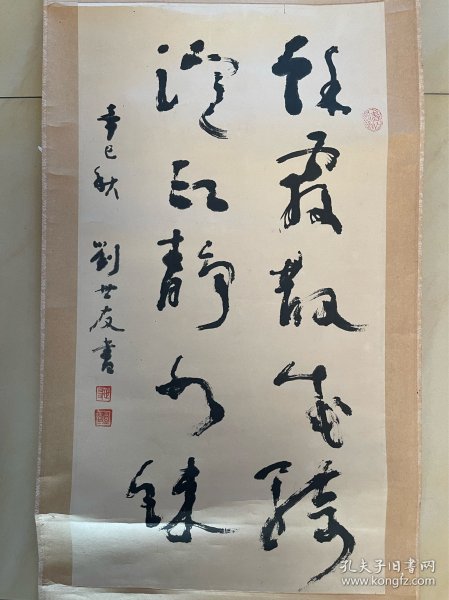 餘霞散成綺
澄江靜如練
辛巳秋 劉世友書
孔夫子旧书网
www.kongfz.com